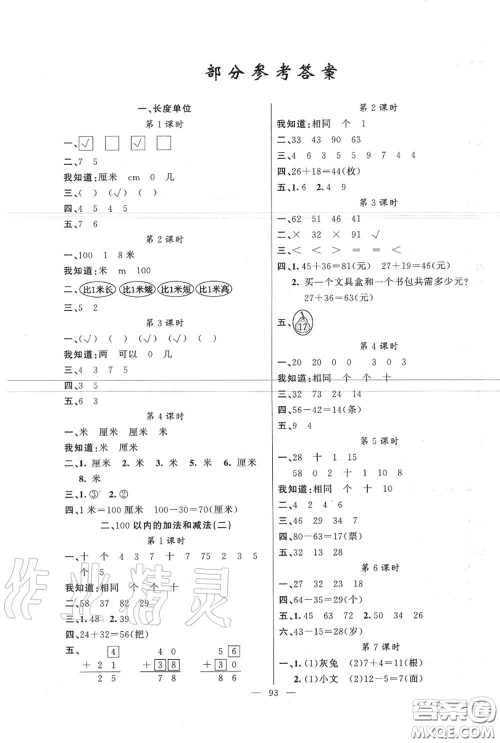 部分参考答案
一、长度单位
第1课时
一、☑ □ ☑ □
二、7 5
我知道:厘米 cm 0 几
三、( ) ( ) (√) ( )
四、4 5 4 5
五、7 6
第2课时
一、100 1 8米
我知道:米 m 100
二、比1米长 比1米矮 比1米短 比1米高
三、5 2
第3课时
一、(√) ( ) ( ) (√) (√)
我知道:两 可以 0 几
二、4 3 7 5
四、3 5
五、6 3
第4课时
一、米 厘米 厘米 米
我知道:米 厘米
二、1. 厘米 2. 米 3. 米 5. 厘米 7. 厘米
8. 米
三、1. ③ 2. ②
四、1米=100厘米 100-30=70(厘米)
二、100以内的加法和减法(二)
第1课时
一、十 个 4 3 7 十 7 75 2 3 5
个 5
我知道:相同 个 十
二、58 37 82 29
三、1. 48 2. 39
四、24+32=56(把)
五、 4 4 0 5 6
+ 2 1 + 3 8 + 3 0
2 5 7 8 8 6
第2课时
我知道:相同 个 1
二、33 43 90 63
三、4 2 8 6
四、26+18=44(枚)
五、1. 6 2. 4 9
第3课时
一、62 51 46 41
二、× 32 × 91 √ √
三、< < > = = <
四、1. 45+36=81(元) 27+19=46(元)
2. 买一个文具盒和一个书包共需多少元?
27+36=63(元)
五、17
第4课时
一、20 20 0 4 3 0 3
我知道:相同 个 个 十
三、32 73 24 14
四、56-42=14(条)
五、9 4
第5课时
一、28 十 1 15
58 0 2 十 1 10 8
我知道:相同 个 十 10
二、4 2 4 6
三、46 29 34 31
四、80-63=17(票)
第6课时
一、34 28 50 18
三、64-35=29(元) 2. 50 34 26
六、43-15=28(岁)
第7课时
一、1. (1)灰兔 (2)7+4=11(个)
2. (1)小文 (2)12-7=5(面)
93
作业精灵